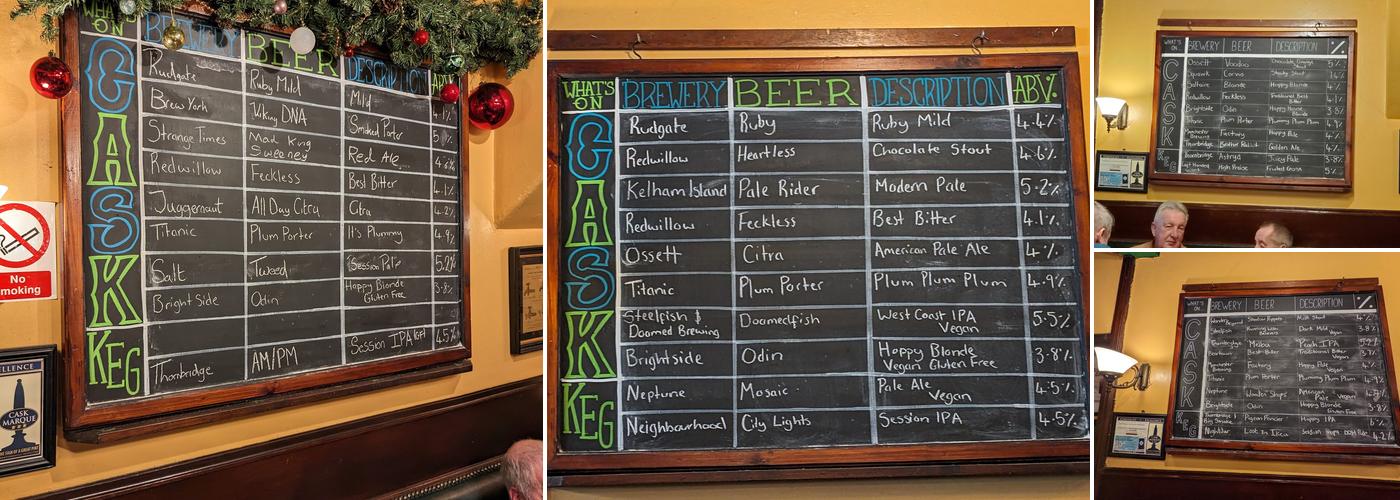 WHAT'S ON BREWERY BEER DESCRIPTION ABV
CASK
Rudgate Ruby Mild Mild 4.1%
Brew York Viking DNA Smoked Porter
Strange Times Mad King Sweeney Red Ale
Redwillow Feckless Best Bitter 4.1%
Juggernaut All Day Citra Citra 4.2%
Titanic Plum Porter It's Plummy 4.9%
Salt Tweed Session Pale 5.2%
Bright Side Odin Hoppy Blonde Gluten Free 3.8%
KEG
Thornbridge AM/PM Session IPA 4.5%
No
smoking
CASK
MARQUE
WHAT'S ON BREWERY BEER DESCRIPTION ABV%
CASK
Rudgate Ruby Ruby Mild 4.4%
Redwillow Heartless Chocolate Stout 4.6%
Kelham Island Pale Rider Modern Pale 5.2%
Redwillow Feckless Best Bitter 4.1%
Ossett Citra American Pale Ale 4%
Titanic Plum Porter Plum Plum Plum 4.9%
Steelfish & Doomed Brewing Doomedfish West Coast IPA Vegan 5.5%
Brightside Odin Hoppy Blonde Vegan Gluten Free 3.8%
KEG
Neptune Mosaic Pale Ale Vegan 4.5%
Neighbourhood City Lights Session IPA 4.5%
WHAT'S ON BREWERY BEER DESCRIPTION %
CASK
Ossett Voodoo Chocolate Orange Stout 5%
Squawk Corvus Stout
Saltaire Blonde Hoppy Blonde 4%
Redwillow Feckless Traditional Best Bitter 4.1%
Brightside Odin Hoppy Blonde 3.8%
Titanic Plum Porter Plummy Plum Plum 4.9%
Manchester Brewing Factory Hoppy Pale 4%
Thornbridge Brother Rabbit Golden Ale 4%
KEG
Thornbridge Astryd Juicy Pale 3.8%
Left Handed High Praise 5%
WHAT'S ON BREWERY BEER DESCRIPTION %
CASK
Milk Stout
Dark Mild Vegan
Thornbridge Melba Peach IPA
Best Bitter Traditional Bitter
Manchester Brewing Factory Hoppy Pale
Titanic Plum Porter Plummy Plum Plum 4.9%
Neptune Wooden Ships
Brightside Odin Hoppy Blonde Gluten Free 3.8%
KEG
Hoppy IPA
Lost In Ikea Session